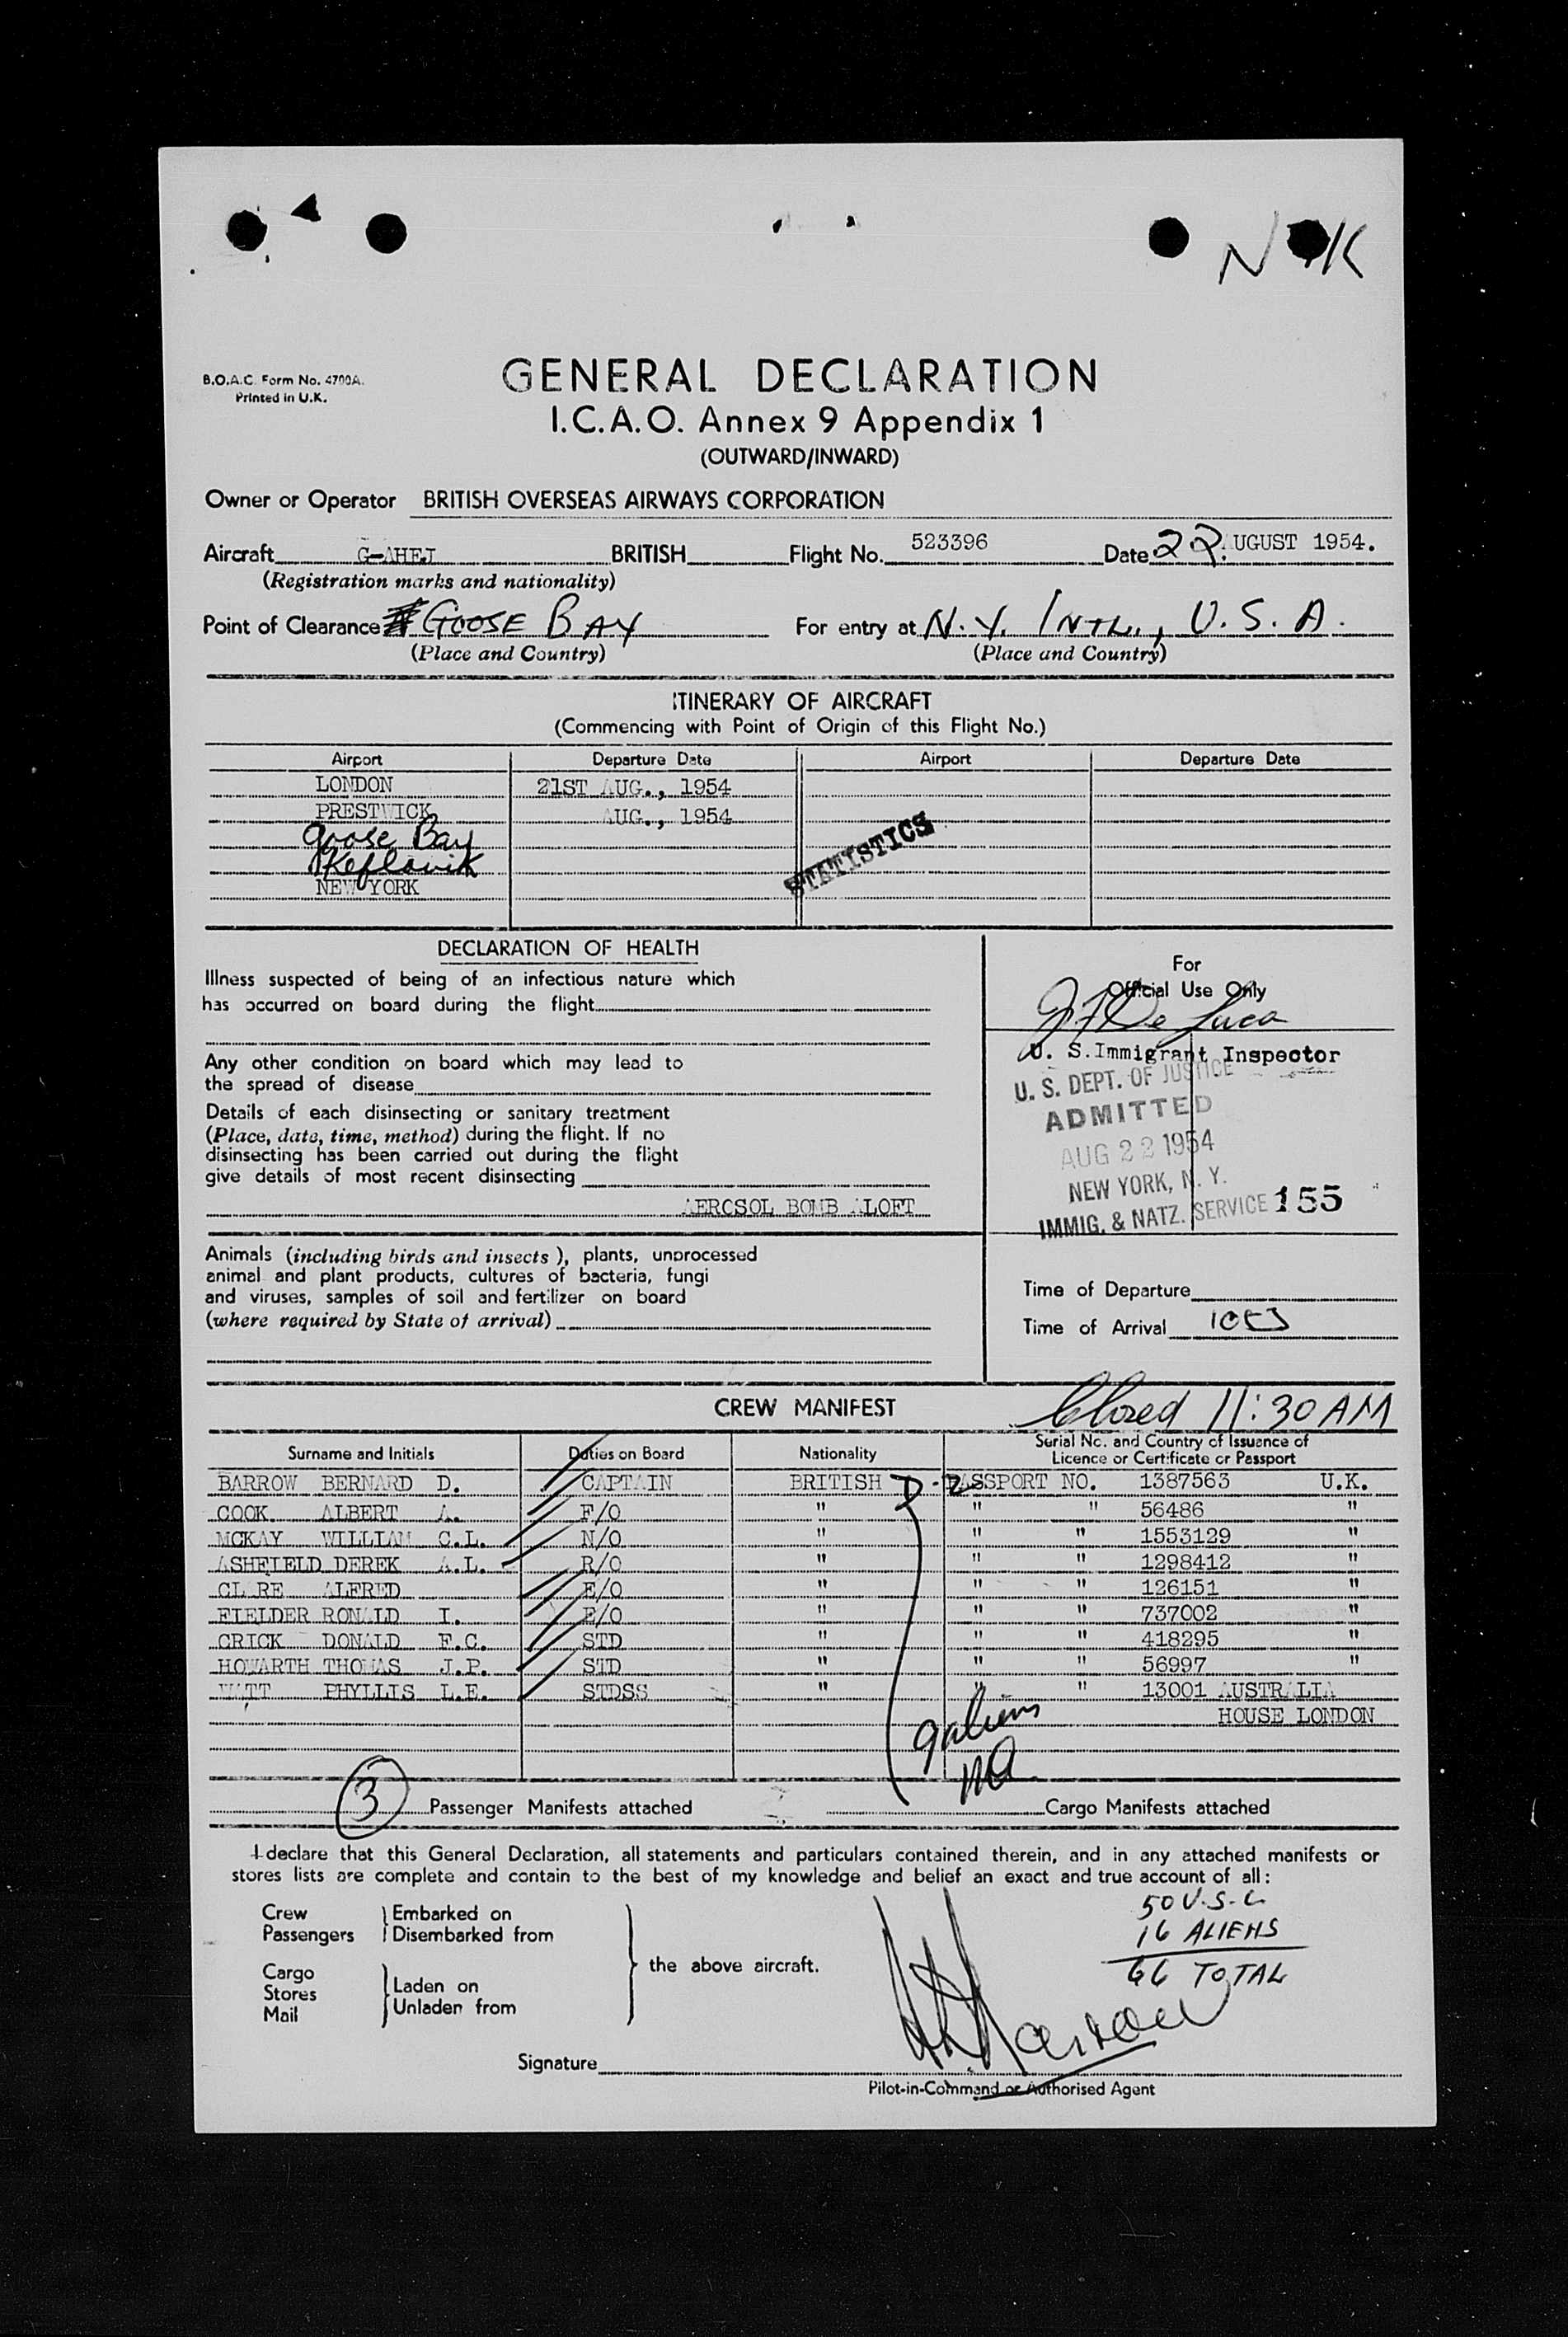 N K
B.O.A.C. Form No. 4700A.
Printed in U.K.
GENERAL DECLARATION
I.C.A.O. Annex 9 Appendix 1
(OUTWARD/INWARD)
Owner or Operator BRITISH OVERSEAS AIRWAYS CORPORATION
Aircraft G-AHEJ BRITISH Flight No. 523396 Date 22 AUGUST 1954.
(Registration marks and nationality)
Point of Clearance GOOSE BAY For entry at N.Y. INTL., U.S.A.
(Place and Country) (Place and Country)
ITINERARY OF AIRCRAFT
(Commencing with Point of Origin of this Flight No.)
Airport Departure Date Airport Departure Date
LONDON 21ST AUG., 1954
PRESTWICK AUG., 1954
Goose Bay
Keflavik
NEW YORK
STATISTICS
DECLARATION OF HEALTH
Illness suspected of being of an infectious nature which
has occurred on board during the flight
Any other condition on board which may lead to
the spread of disease
Details of each disinsecting or sanitary treatment
(Place, date, time, method) during the flight. If no
disinsecting has been carried out during the flight
give details of most recent disinsecting
AEROSOL BOMB ALOFT
Animals (including birds and insects), plants, unprocessed
animal and plant products, cultures of bacteria, fungi
and viruses, samples of soil and fertilizer on board
(where required by State of arrival)
For
Official Use Only
De Luca
U. S. Immigrant Inspector
U. S. DEPT. OF JUSTICE
ADMITTED
AUG 22 1954
NEW YORK, N. Y.
IMMIG. & NATZ. SERVICE 155
Time of Departure
Time of Arrival
Closed 11:30 AM
CREW MANIFEST
Surname and Initials Duties on Board Nationality Serial No. and Country of Issuance of
Licence or Certificate or Passport
BARROW BERNARD D. CAPTAIN BRITISH D-2 PASSPORT NO. 1387563 U.K.
COOK ALBERT A. F/O " " " 56486 "
MCKAY WILLIAM C.L. N/O " " " 1553129 "
ASHFIELD DEREK A.L. R/O " " " 1298412 "
CLARE ALFRED E/O " " " 126151 "
FIELDER RONALD I. E/O " " " 737002 "
CRICK DONALD F.C. STD " " " 418295 "
HOWARTH THOMAS J.P. STD " " " 56997 "
WATT PHYLLIS L.E. STDSS " " " 13001 AUSTRALIA
HOUSE LONDON
9 aliens
3 Passenger Manifests attached Cargo Manifests attached
I declare that this General Declaration, all statements and particulars contained therein, and in any attached manifests or
stores lists are complete and contain to the best of my knowledge and belief an exact and true account of all:
Crew Embarked on
Passengers Disembarked from
the above aircraft.
Cargo
Stores Laden on
Mail Unladen from
50 U.S.C.
16 ALIENS
66 TOTAL
Signature Barrow
Pilot-in-Command or Authorised Agent